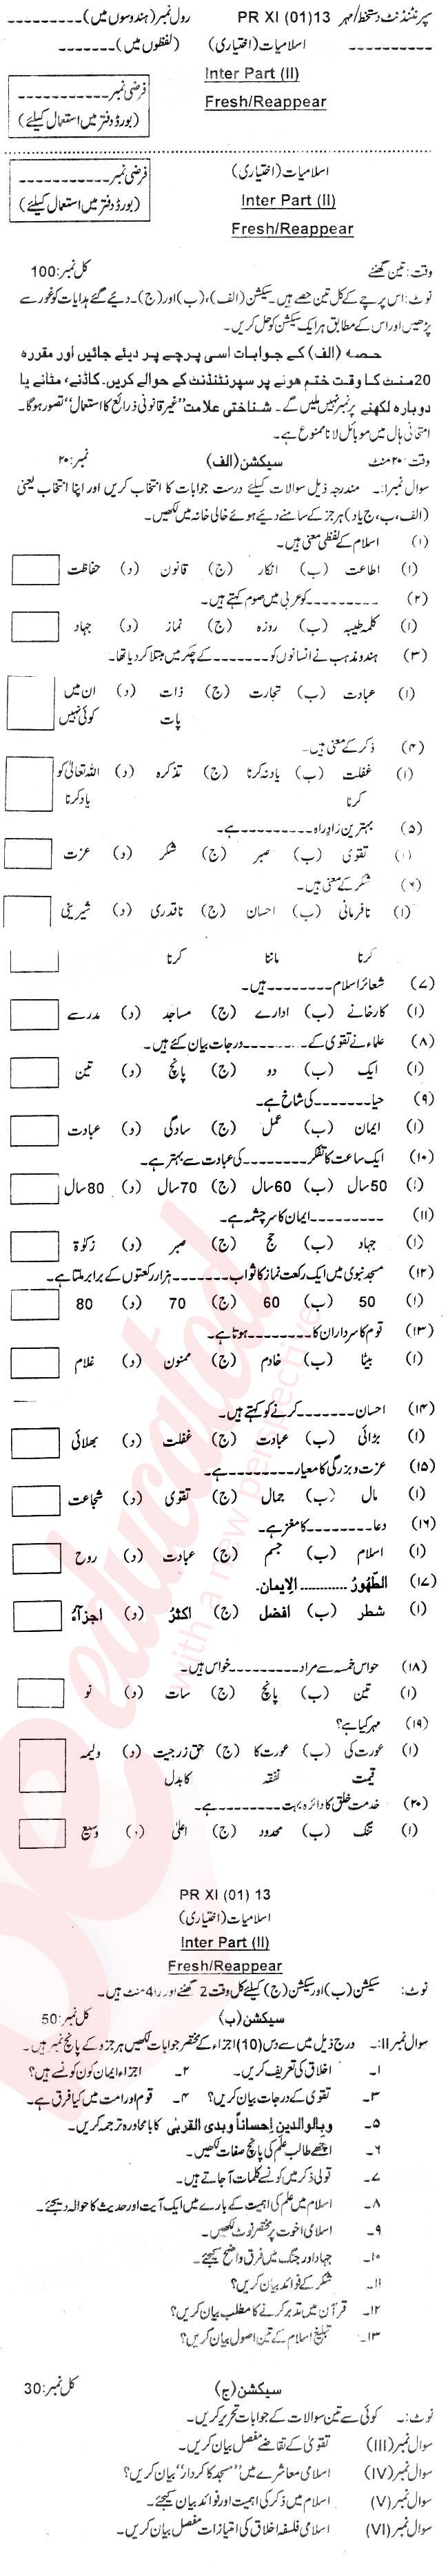 سپرنٹنڈنٹ دستخط/مہر PR XI (01)13 رول نمبر (ہندسوں میں) ----------
---------- اسلامیات (اختیاری) (لفظوں میں) -------
Inter Part (II)
Fresh/Reappear
فرضی نمبر -----------
(بورڈ دفتر میں استعمال کیلئے)
اسلامیات (اختیاری)
Inter Part (II)
Fresh/Reappear
فرضی نمبر -----------
(بورڈ دفتر میں استعمال کیلئے)
وقت: تین گھنٹے کل نمبر: 100
نوٹ: اس پرچے کے کل تین حصے ہیں۔ سیکشن (الف)، (ب) اور (ج)۔ دیئے گئے ہدایات کو غور سے
پڑھیں اور اس کے مطابق ہر ایک سیکشن کو حل کریں۔
حصہ (الف) کے جوابات اسی پرچے پر دیئے جائیں اور مقررہ
20 منٹ کا وقت ختم ہونے پر سپرنٹنڈنٹ کے حوالے کریں۔ کاٹنے، مٹانے یا
دوبارہ لکھنے پر نمبر نہیں ملیں گے۔ شناختی علامت "غیر قانونی ذرائع کا استعمال" تصور ہوگا۔
امتحانی ہال میں موبائل لانا ممنوع ہے۔
وقت: ۲۰ منٹ سیکشن (الف) نمبر: ۲۰
سوال نمبر ا:۔ مندرجہ ذیل سوالات کیلئے درست جوابات کا انتخاب کریں اور اپنا انتخاب یعنی
(الف، ب، ج یا د) ہر جز کے سامنے دیئے ہوئے خالی خانہ میں لکھیں۔
(۱) اسلام کے لفظی معنی ہیں۔
(ا) اطاعت (ب) انکار (ج) قانون (د) حفاظت
(۲) ---------کو عربی میں صوم کہتے ہیں۔
(ا) کلمہ طیبہ (ب) روزہ (ج) نماز (د) جہاد
(۳) ہندو مذہب نے انسانوں کو-------کے چکر میں مبتلا کر دیا تھا۔
(ا) عبادت (ب) تجارت (ج) ذات (د) ان میں
پات کوئی نہیں
(۴) ذکر کے معنی ہیں۔
(ا) غفلت (ب) یاد نہ کرنا (ج) تذکرہ (د) اللہ تعالیٰ کو
کرنا یاد کرنا
(۵) بہترین زادِ راہ----------ہے۔
(ا) تقویٰ (ب) صبر (ج) شکر (د) عزت
(۶) شکر کے معنی ہیں۔
(ا) نافرمانی (ب) احسان (ج) ناقدری (د) شیرینی
کرنا ماننا کرنا
(۷) شعائر اسلام--------ہیں۔
(ا) کارخانے (ب) ادارے (ج) مساجد (د) مدرسے
(۸) علماء نے تقویٰ کے---------درجات بیان کئے ہیں۔
(ا) ایک (ب) دو (ج) پانچ (د) تین
(۹) حیا-------کی شاخ ہے۔
(ا) ایمان (ب) عمل (ج) سادگی (د) عبادت
(۱۰) ایک ساعت کا تفکر---------کی عبادت سے بہتر ہے۔
(ا) 50 سال (ب) 60 سال (ج) 70 سال (د) 80 سال
(۱۱) ----------ایمان کا سرچشمہ ہے۔
(ا) جہاد (ب) حج (ج) صبر (د) زکوٰۃ
(۱۲) مسجد نبوی میں ایک رکعت نماز کا ثواب-------ہزار رکعتوں کے برابر ملتا ہے۔
(ا) 50 (ب) 60 (ج) 70 (د) 80
(۱۳) قوم کا سردار ان کا--------ہوتا ہے۔
(ا) بیٹا (ب) خادم (ج) ممنون (د) غلام
(۱۴) احسان-------کرنے کو کہتے ہیں۔
(ا) بڑائی (ب) عبادت (ج) غفلت (د) بھلائی
(۱۵) عزت و بزرگی کا معیار---------ہے۔
(ا) مال (ب) جمال (ج) تقویٰ (د) شجاعت
(۱۶) دعا---------کا مغز ہے۔
(ا) اسلام (ب) جسم (ج) عبادت (د) روح
(۱۷) الطّهُورُ ............ الإيمان۔
(ا) شطر (ب) افضل (ج) اکثرُ (د) اجزآءُ
(۱۸) حواس خمسہ سے مراد---------خواس ہیں۔
(ا) تین (ب) پانچ (ج) سات (د) نو
(۱۹) مہر کیا ہے؟
(ا) عورت کی (ب) عورت کا (ج) حق زوجیت (د) ولیمہ
قیمت نفقہ کا بدل
(۲۰) خدمت خلق کا دائرہ بہت--------ہے۔
(ا) تنگ (ب) محدود (ج) اعلیٰ (د) وسیع
PR XI (01) 13
اسلامیات (اختیاری)
Inter Part (II)
Fresh/Reappear
نوٹ: سیکشن (ب) اور سیکشن (ج) کیلئے کل وقت 2 گھنٹے اور 40 منٹ ہیں۔
سیکشن (ب) کل نمبر: 50
سوال نمبر II:۔ درج ذیل میں سے دس (10) اجزاء کے مختصر جوابات لکھیں ہر جزو کے پانچ نمبر ہیں۔
۱۔ اخلاق کی تعریف کریں۔ ۲۔ اجزاء ایمان کون کونسے ہیں؟
۳۔ تقویٰ کے درجات بیان کریں؟ ۴۔ قوم اور امت میں کیا فرق ہے۔
۵۔ وبالوالدین إحساناً وبذی القربیٰ کا بامحاورہ ترجمہ کریں۔
۶۔ اچھے طالب علم کی پانچ صفات لکھیں۔
۷۔ قولی ذکر میں کونسے کلمات آجاتے ہیں۔
۸۔ اسلام میں علم کی اہمیت کے بارے میں ایک آیت اور حدیث کا حوالہ دیجئے۔
۹۔ اسلامی اخوت پر مختصر نوٹ لکھیں۔
۱۰۔ جہاد اور جنگ میں فرق واضح کیجئے۔
۱۱۔ شکر کے فوائد بیان کریں؟
۱۲۔ قرآن میں تدبر کرنے کا مطلب بیان کریں؟
۱۳۔ تبلیغ اسلام کے تین اصول بیان کریں؟
سیکشن (ج) کل نمبر: 30
نوٹ:۔ کوئی سے تین سوالات کے جوابات تحریر کریں۔
سوال نمبر (III) تقویٰ کے تقاضے مفصل بیان کریں۔
سوال نمبر (IV) اسلامی معاشرے میں "مسجد کا کردار" بیان کریں؟
سوال نمبر (V) اسلام میں ذکر کی اہمیت اور فوائد بیان کیجئے۔
سوال نمبر (VI) اسلامی فلسفہ اخلاق کی امتیازات مفصل بیان کریں۔
educated
with a new perspective